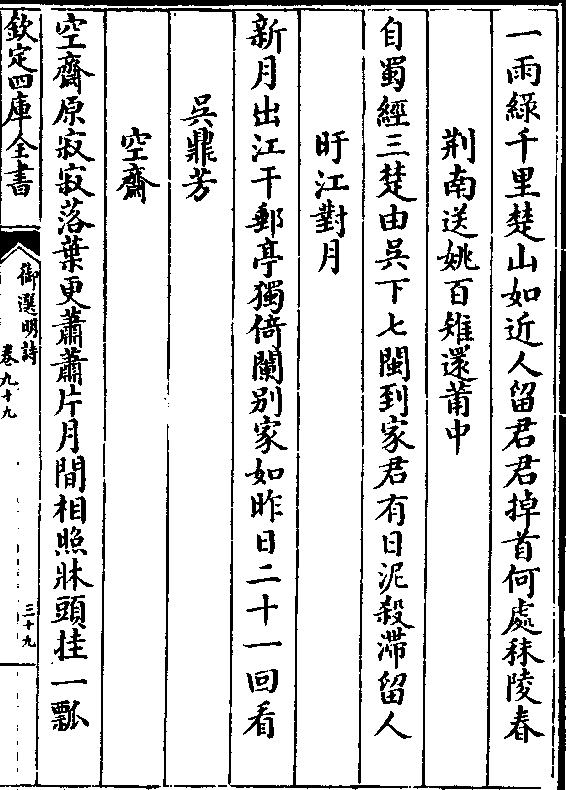 一雨緑千里楚山如近人留君君掉首何處秣陵春
荆南送姚百雉還莆中
自蜀經三楚由吳下七閩到家君有日泥殺滯留人
盱江對月
新月出江干郵亭獨倚闌别家如昨日二十一回看
吳鼎芳
空齋
空齋原寂寂落葉更蕭蕭片月間相照牀頭挂一瓢
欽定四庫全書
御選明詩
卷九十九
三十九